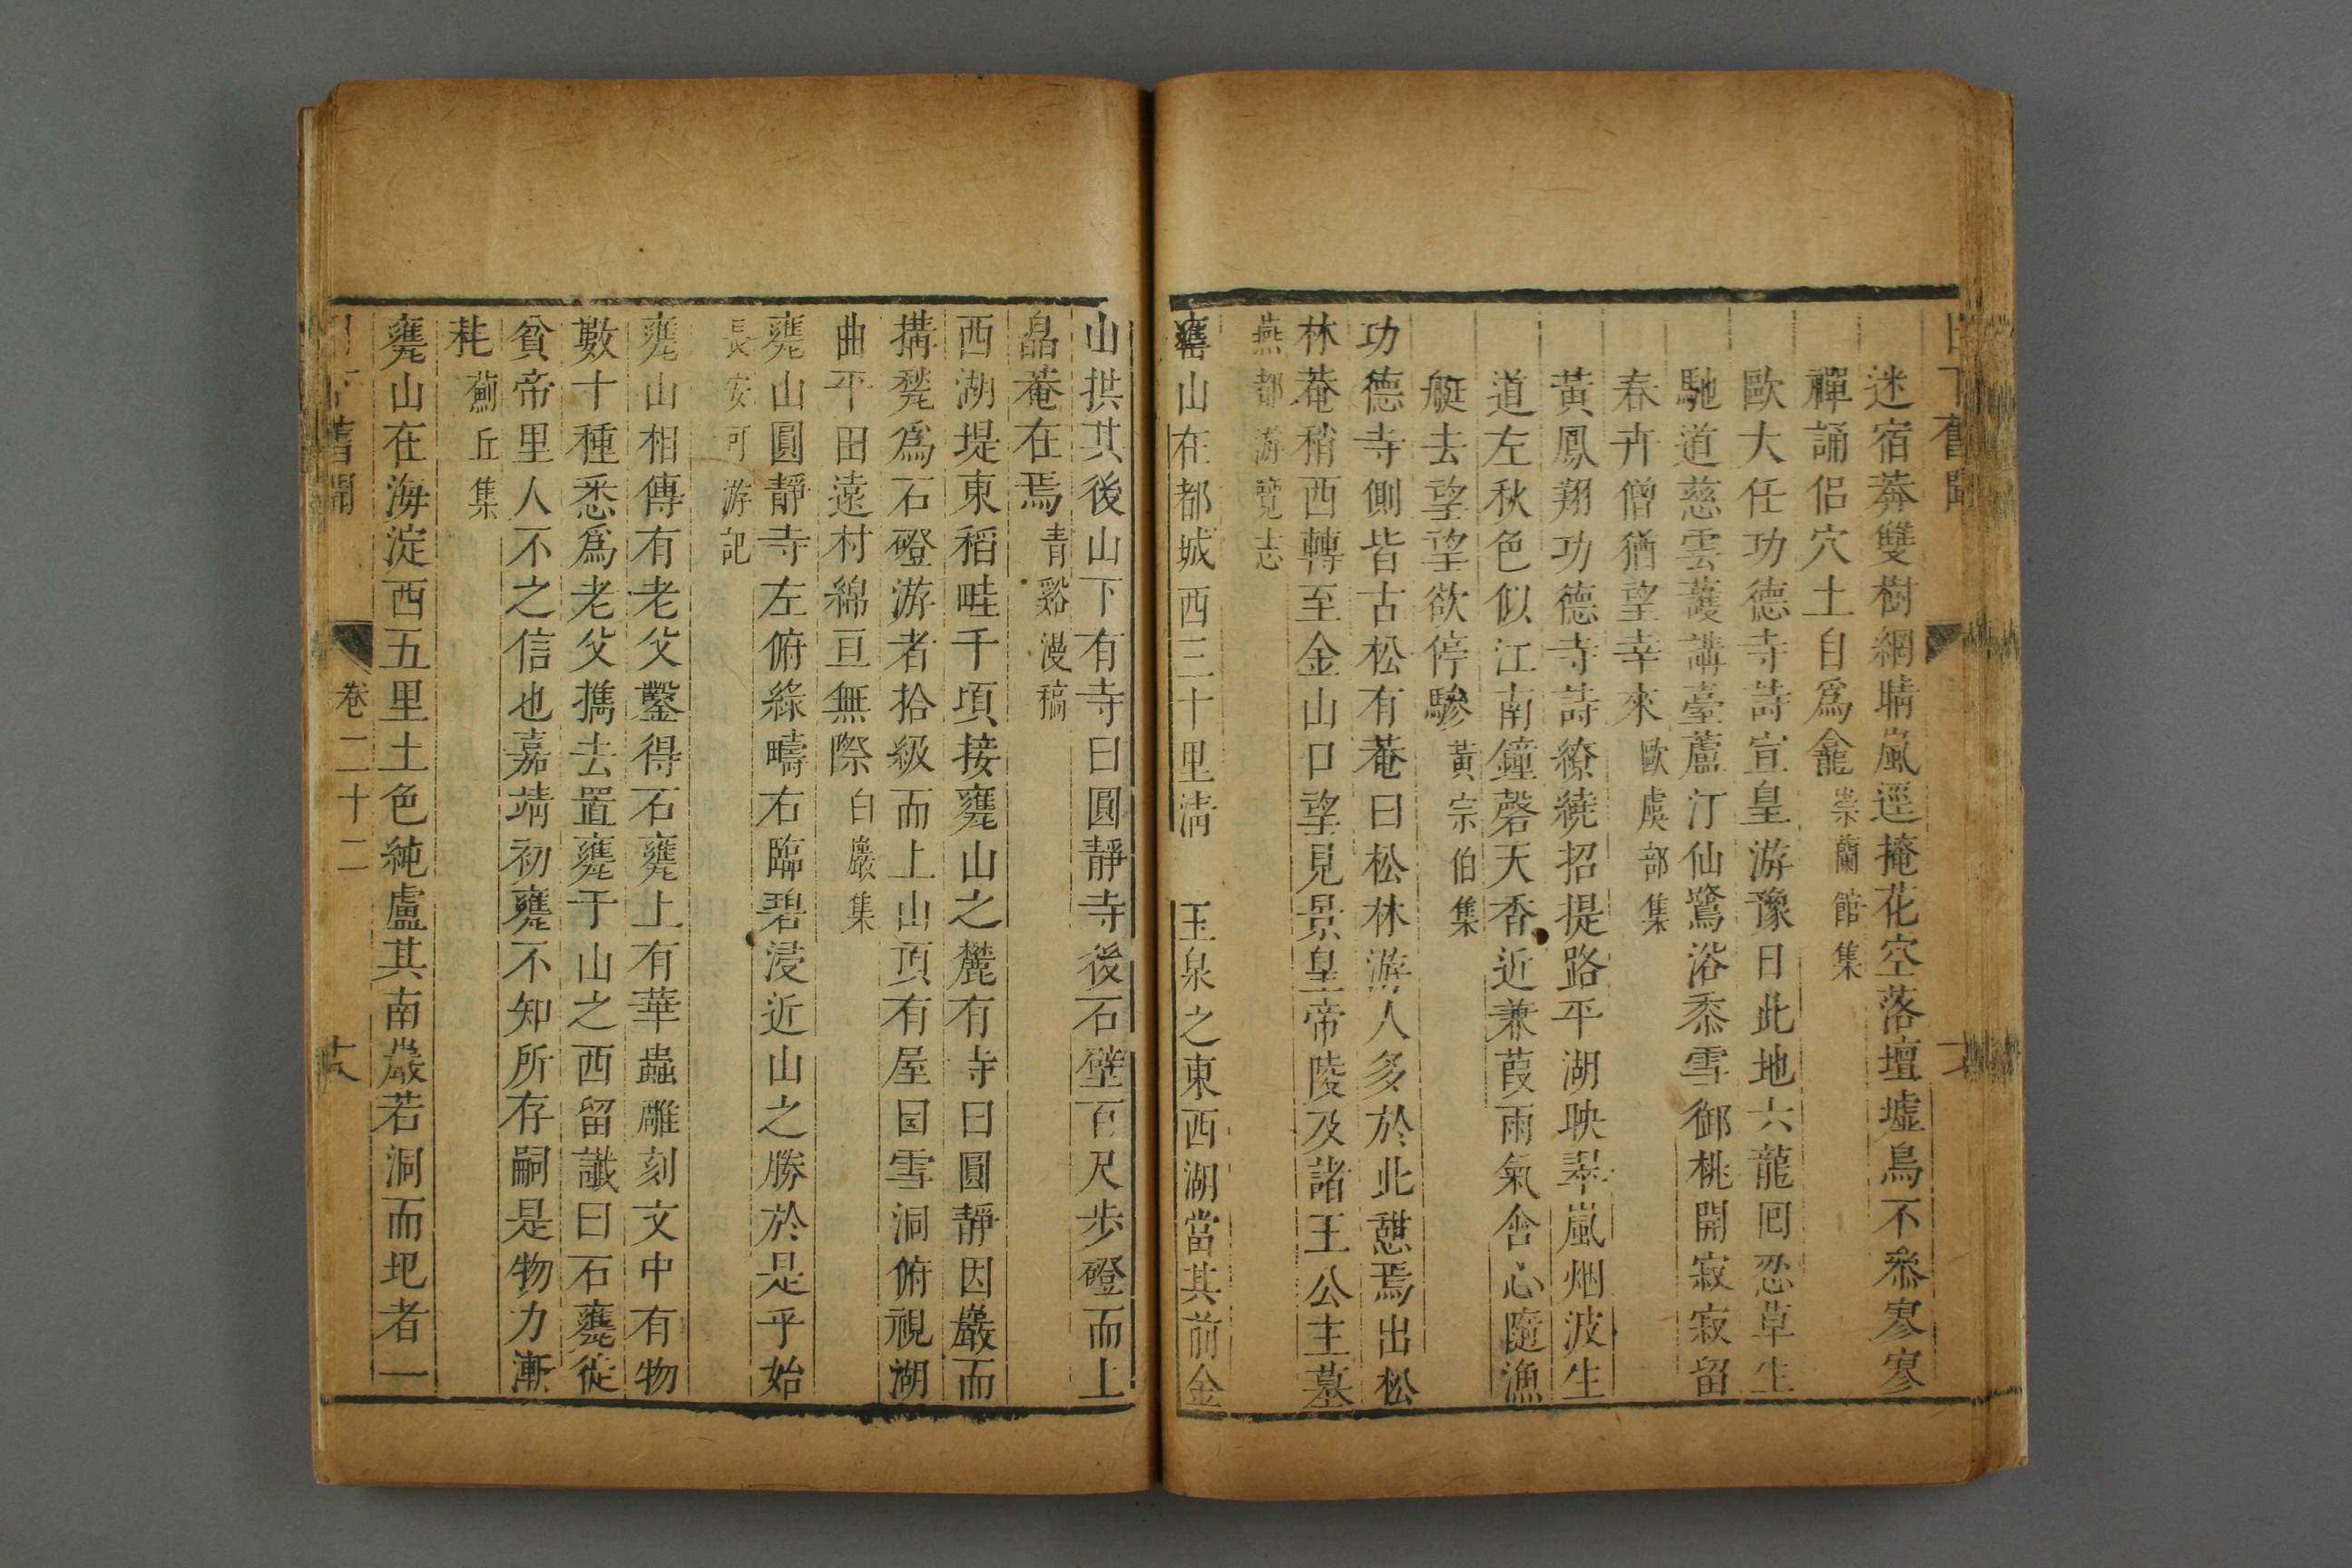 日下舊聞
迷宿莽雙樹網晴嵐逕掩花空落壇墟鳥不叅寥寥
禪誦侶穴土自爲龕 崇蘭館集
歐大任功德寺詩宣皇游豫日此地六龍囘忍草生
馳道慈雲護講臺蘆汀仙鷺浴黍雪御桃開寂寂留
春卉僧猶望幸來 歐虞部集
黃鳳翔功德寺詩繚繞招提路平湖映翠嵐烟波生
道左秋色似江南鐘磬天香近蒹葭雨氣含心隨漁
艇去望望欲停驂 黃宗伯集
功德寺側皆古松有菴曰松林游人多於此憇焉出松
林菴稍西轉至金山口望見景皇帝陵及諸王公主墓
燕都游覽志
甕山在都城西三十里淸 玉泉之東西湖當其前金
山拱其後山下有寺曰圓靜寺後石壁百尺步磴而上
皛菴在焉 靑谿漫稿
西湖堤東稻畦千頃接甕山之麓有寺曰圓靜因巖而
搆甃爲石磴游者拾級而上山頂有屋曰雪洞俯視湖
曲平田遠村綿亘無際 白巖集
甕山圓靜寺左俯綠疇右臨碧浸近山之勝於是乎始
長安可游記
甕山相傳有老父鑿得石甕上有華蟲雕刻文中有物
數十種悉爲老父擕去置甕于山之西留讖曰石甕徙
貧帝里人不之信也嘉靖初甕不知所存嗣是物力漸
耗 薊丘集
甕山在海淀西五里土色純盧其南巖若洞而圯者一
日下舊聞 卷二十二